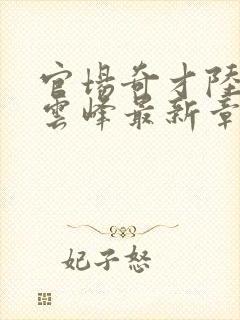 官場奇才陸
雲峰最新章
妃子怒